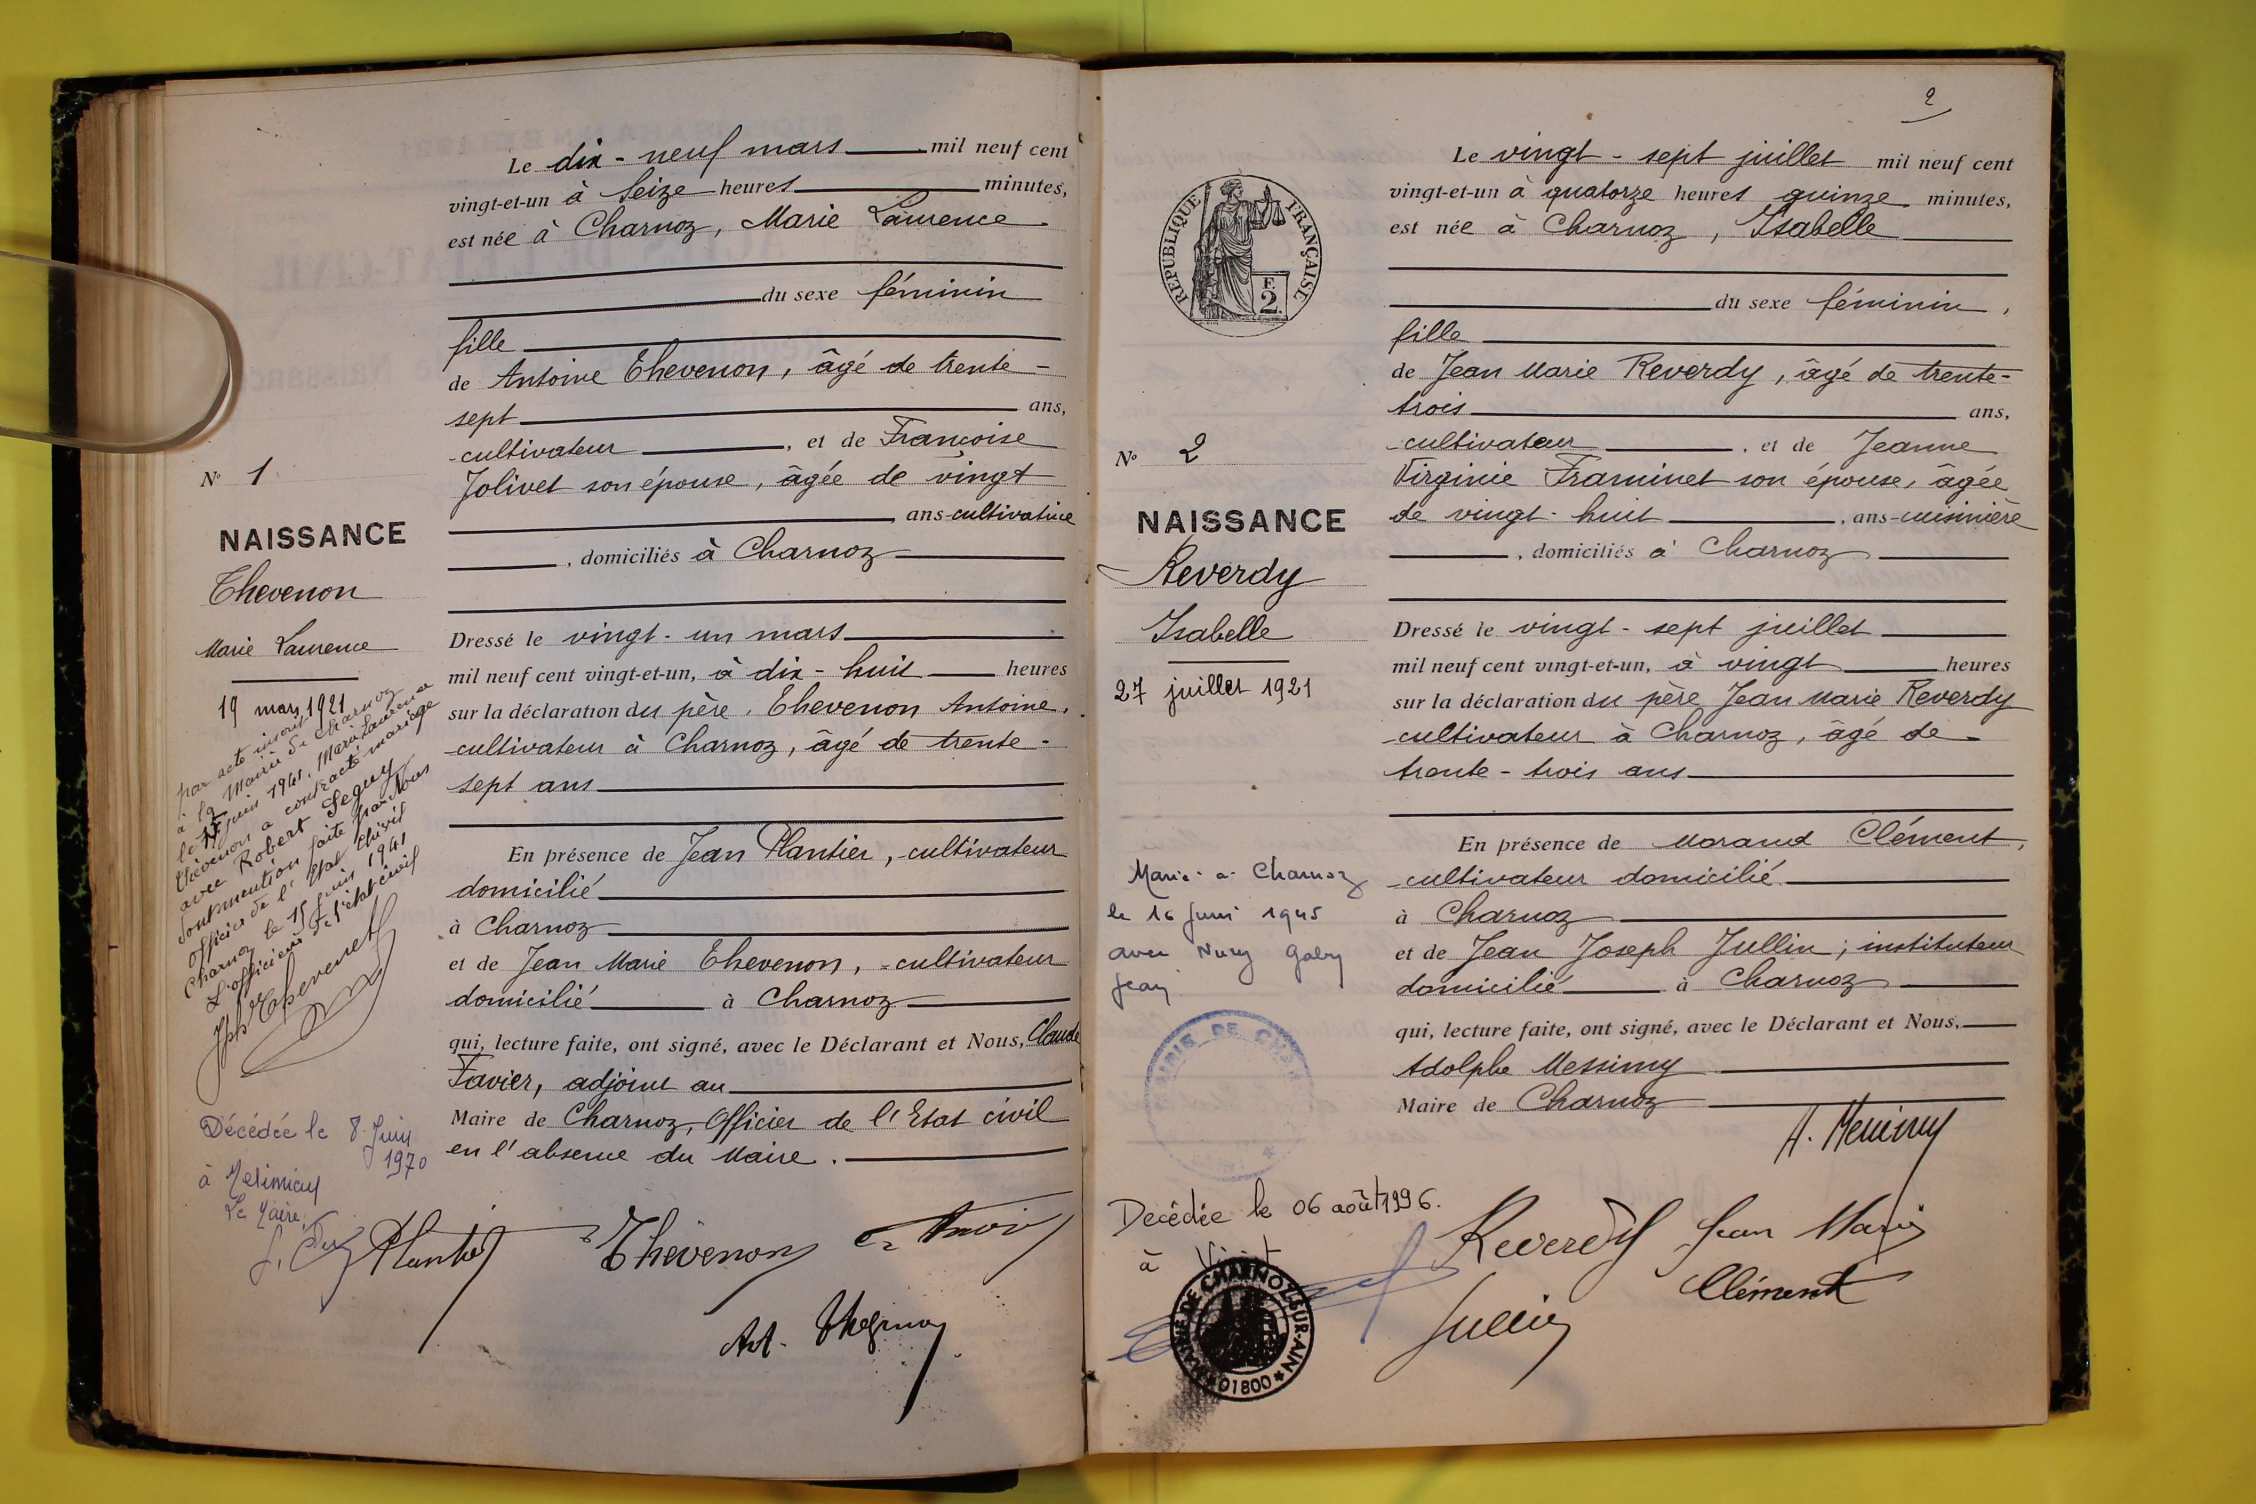 Le dix-neuf mars mil neuf cent
vingt-et-un à seize heures minutes,
est née à Charnoz, Marie Laurence
du sexe féminin
fille
de Antoine Thevenon, âgé de trente-
sept ans,
cultivateur, et de Françoise
Jolivet son épouse, âgée de vingt
ans cultivatrice
, domiciliés à Charnoz
Dressé le vingt-un mars
mil neuf cent vingt-et-un, à dix-huit heures
sur la déclaration du père, Thevenon Antoine,
cultivateur à Charnoz, âgé de trente-
sept ans
En présence de Jean Plantier, cultivateur
domicilié
à Charnoz
et de Jean Marie Thevenon, cultivateur
domicilié à Charnoz
qui, lecture faite, ont signé, avec le Déclarant et Nous, Claude
Favier, adjoint au
Maire de Charnoz, Officier de l'Etat civil
en l'absence du Maire.
Plantier
Thévenon
Ant. Thevenon
N° 1
NAISSANCE
Thevenon
Marie Laurence
19 mars 1921
par acte inscrit
à la Mairie de Charnoz
le 15 juin 1941, Marie Laurence
Thévenon a contracté mariage
avec Robert Seguy
dont mention faite par Nous
officier de l'Etat Civil
Charnoz le 15 juin 1941
L'officier de l'état civil
Jph Thevenet
Décédée le 8 Juin
1970
à Meximieux
Le Maire,
2
Le vingt-sept juillet mil neuf cent
vingt-et-un à quatorze heures quinze minutes,
est née à Charnoz, Isabelle
du sexe féminin,
fille
de Jean Marie Reverdy, âgé de trente-
trois ans,
cultivateur, et de Jeanne
Virginie Framinet son épouse, âgée
de vingt-huit, ans-cuisinière
, domiciliés à Charnoz
Dressé le vingt-sept juillet
mil neuf cent vingt-et-un, à vingt heures
sur la déclaration du père Jean Marie Reverdy
cultivateur à Charnoz, âgé de
trente-trois ans
En présence de Morand Clément,
cultivateur domicilié
à Charnoz
et de Jean Joseph Jullin; instituteur
domicilié à Charnoz
qui, lecture faite, ont signé, avec le Déclarant et Nous,
Adolphe Messimy
Maire de Charnoz
A. Messimy
Reverdy Jean Marie
Clément
Jullin
RÉPUBLIQUE FRANÇAISE
F.
2.
N° 2
NAISSANCE
Reverdy
Isabelle
27 juillet 1921
Mariée à Charnoz
le 16 Juin 1945
avec Nury Gaby
Jean
Décédée le 06 août 1996.
à
MAIRIE DE CHARNOZ-SUR-AIN
01800